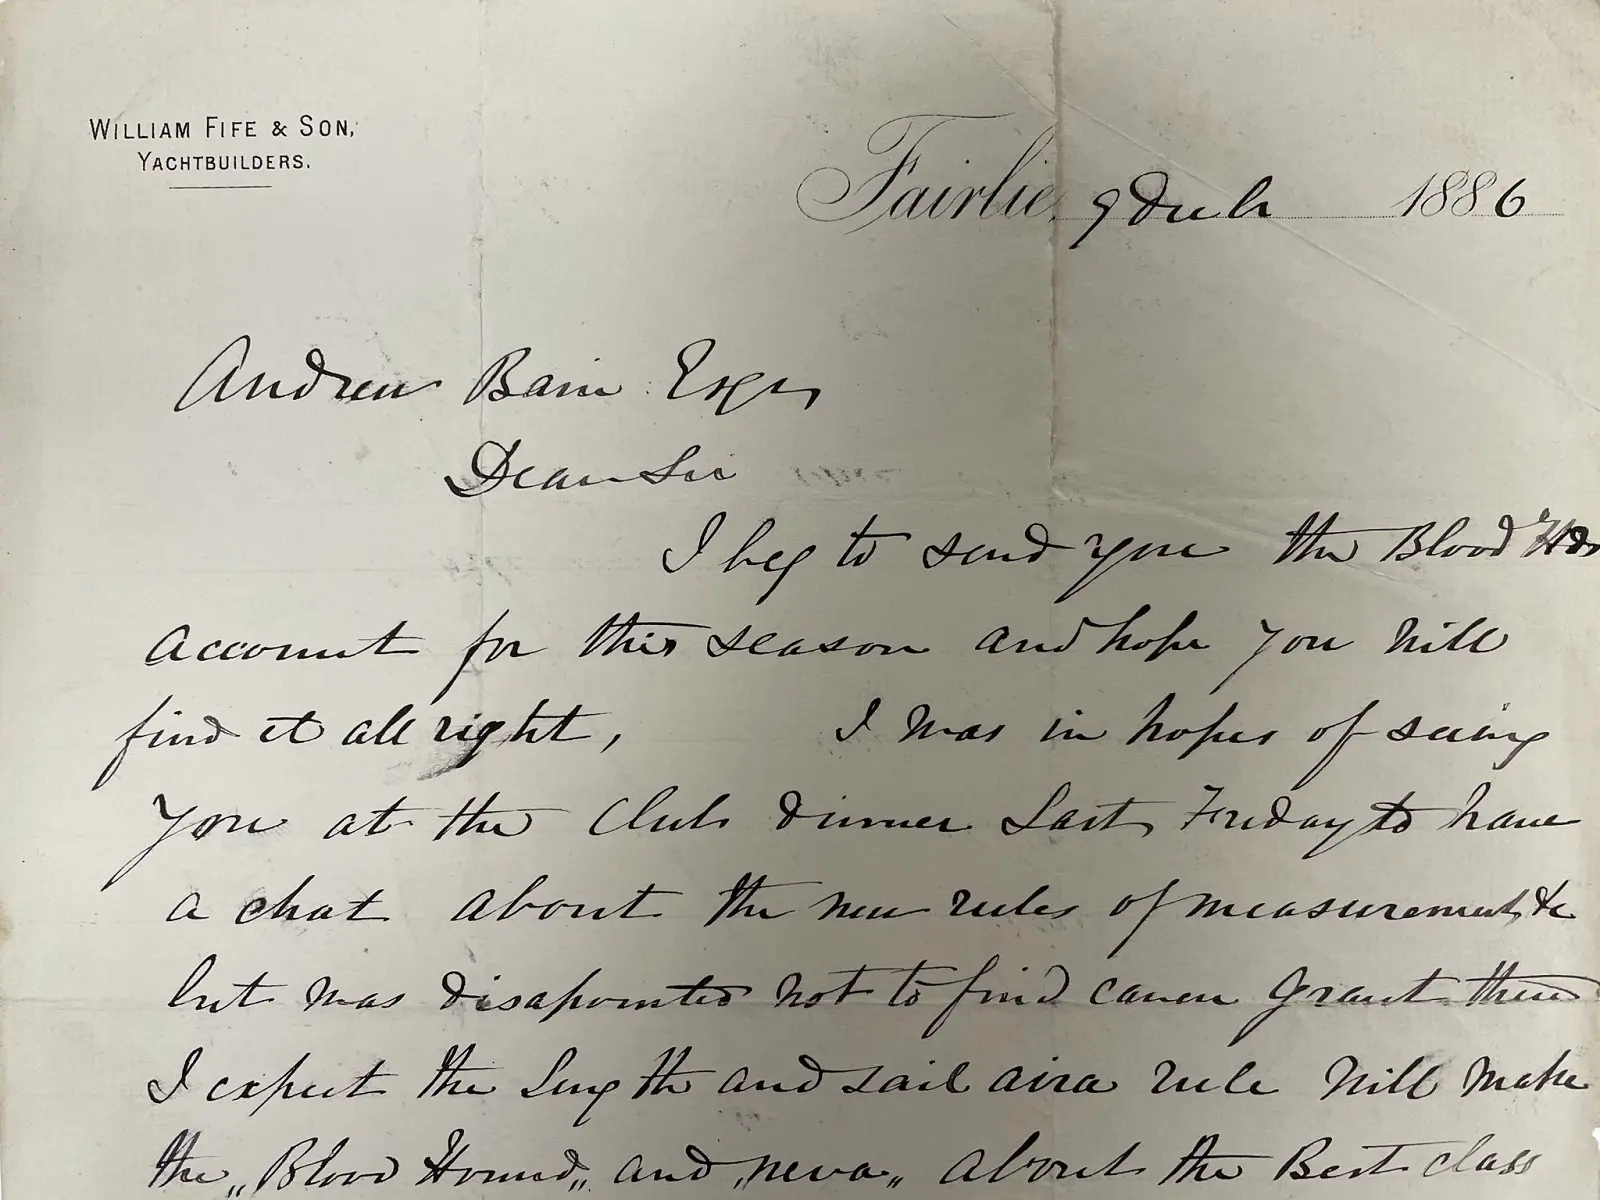 WILLIAM FIFE & SON,
YACHTBUILDERS.
Fairlie, 9 1886
Andrew Bain Esqr,
Dear Sir
I beg to send you the Blood Hds
account for this season and hope you will
find it all right, I was in hopes of seeing
you at the Club dinner Last Friday to have
a chat about the new rules of measurement &c
but was disapointed not to find Grant there
I expect the Length and sail aira rule will make
the „Blood Hound„ and „neva„ about the Best class